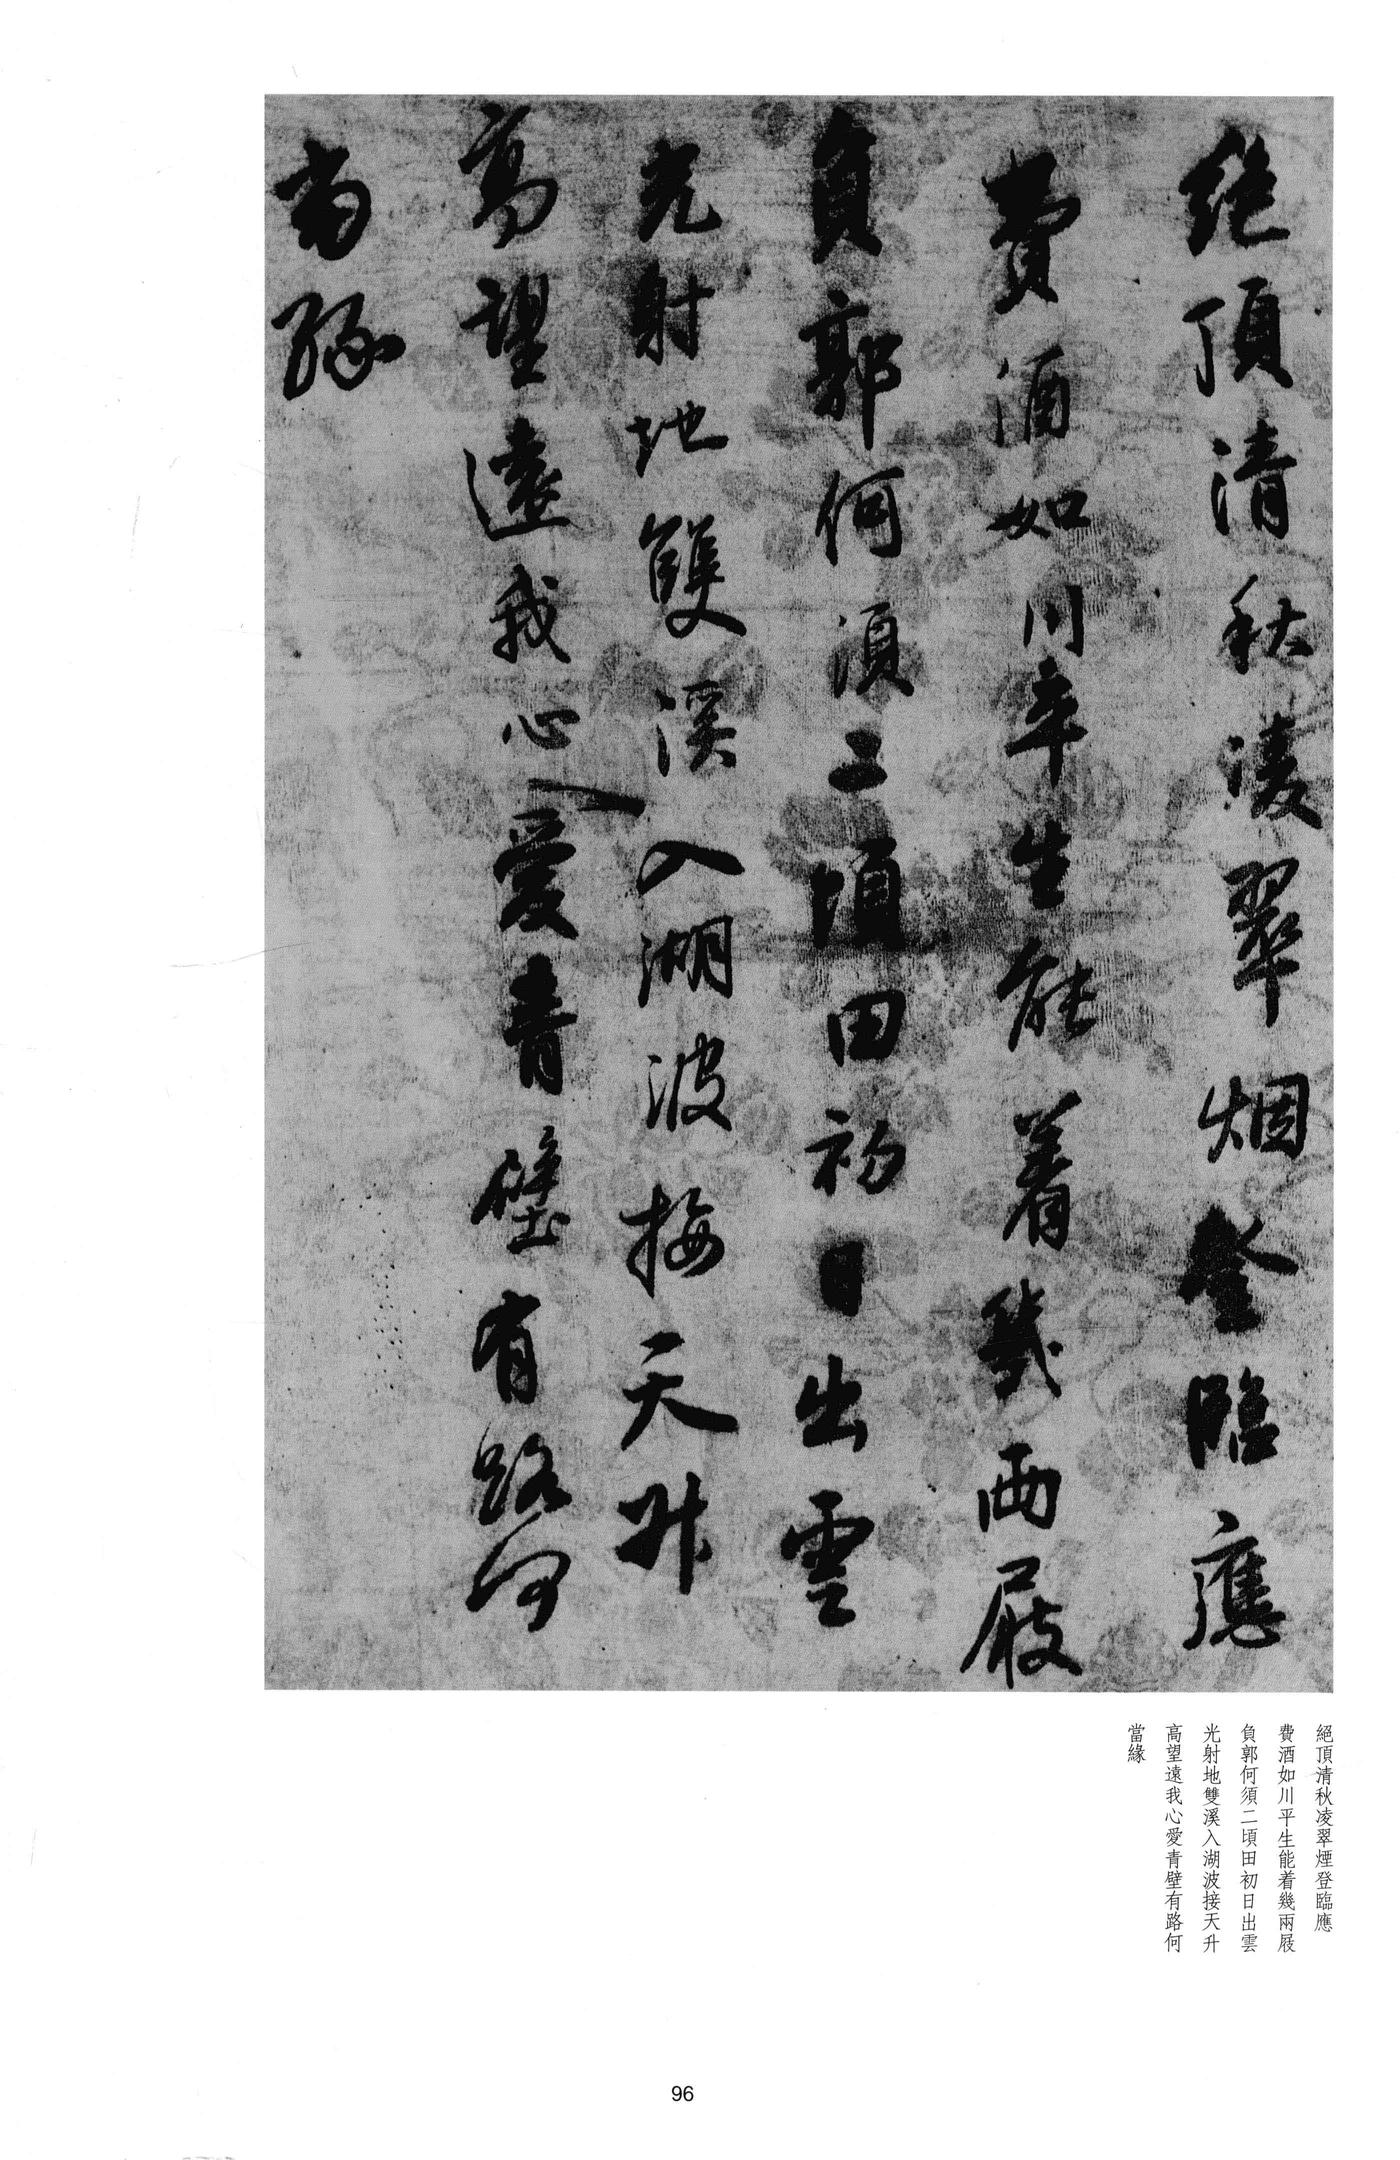 绝顶清秋凌翠烟登臨應
費酒如川平生能着幾兩屐
負郭何須二頃田初日出雲
光射地雙溪入湖波接天升
高望遠我心愛青壁有路何
當緣
絕頂清秋凌翠煙登臨應
費酒如川平生能着幾兩屐
負郭何須二頃田初日出雲
光射地雙溪入湖波接天升
高望遠我心愛青壁有路何
當緣
96